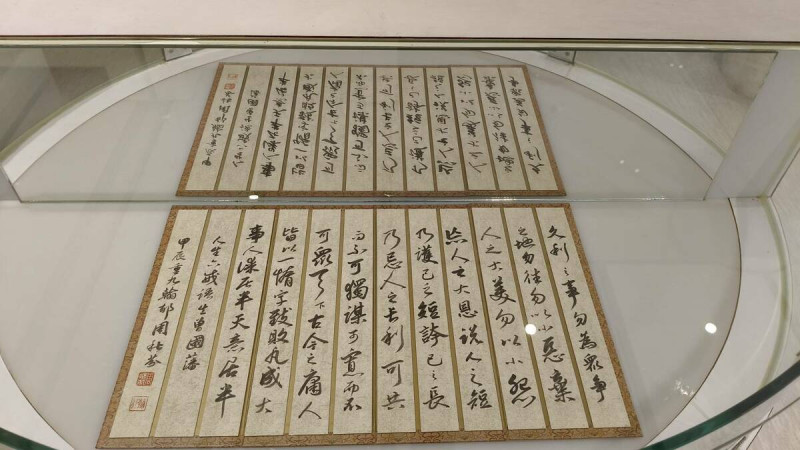 久利之事勿為眾爭
之地勿往勿以小惡棄
人之大美勿以小怨
忘人之大恩說人之短
乃護己之短誇己之長
乃忌人之長利可共
而不可獨謀可寡而不
可眾天下古今之庸人
皆以一惰字致敗凡成大
事人謀居半天意居半
人生六戒語曾國藩
甲辰重九周芬